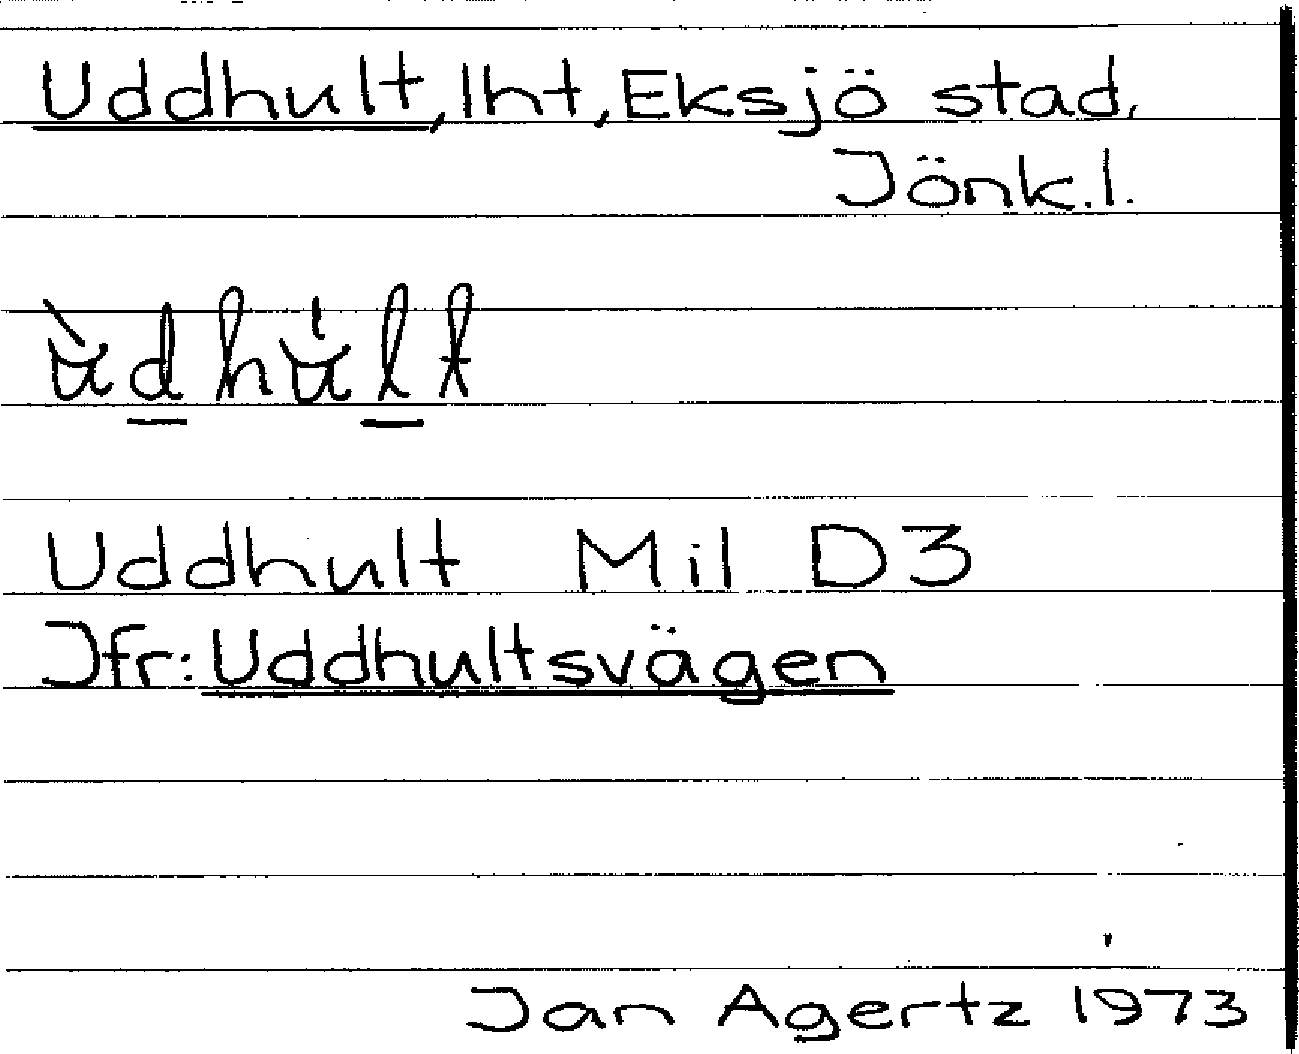 Uddhult, lht, Eksjö stad,
Jönk.l.
ùdhu̍lt
Uddhult Mil D3
Jfr: Uddhultsvägen
Jan Agertz 1973